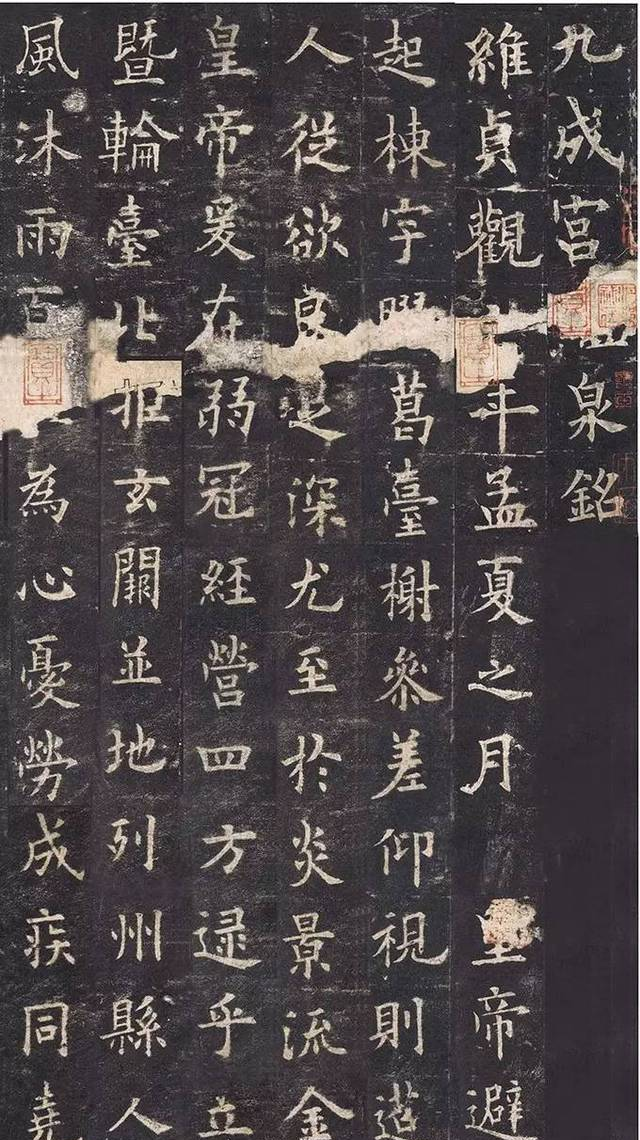 九成宮泉銘
維貞觀年孟夏之月 皇帝避
起棟宇葛臺榭叅差仰視則迢
人從欲良足深尤至於炎景流金
皇帝爰在弱冠經營四方逮乎立
暨輪臺北拒玄闕並地列州縣人
風沐雨百為心憂勞成疾同堯